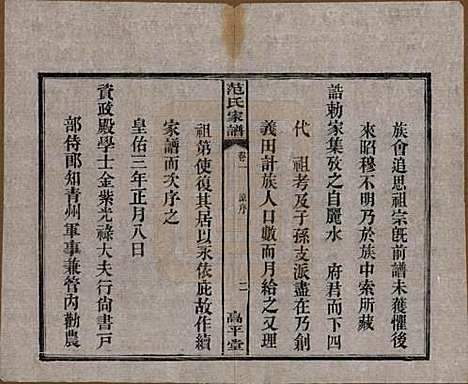 族會追思祖宗旣前譜未獲懼後
來昭穆不明乃於族中索所藏
誥勅家集攷之自麗水　府君而下四
代　祖考及子孫支派盡在乃創
義田計族人口數而月給之又理
范氏家譜　卷一　二　高平堂
祖第使復其居以永依庇故作續
家譜而次序之
皇佑三年正月八日
資政殿學士金紫光祿大夫行尚書户
部侍郎知青州軍事兼管內勸農